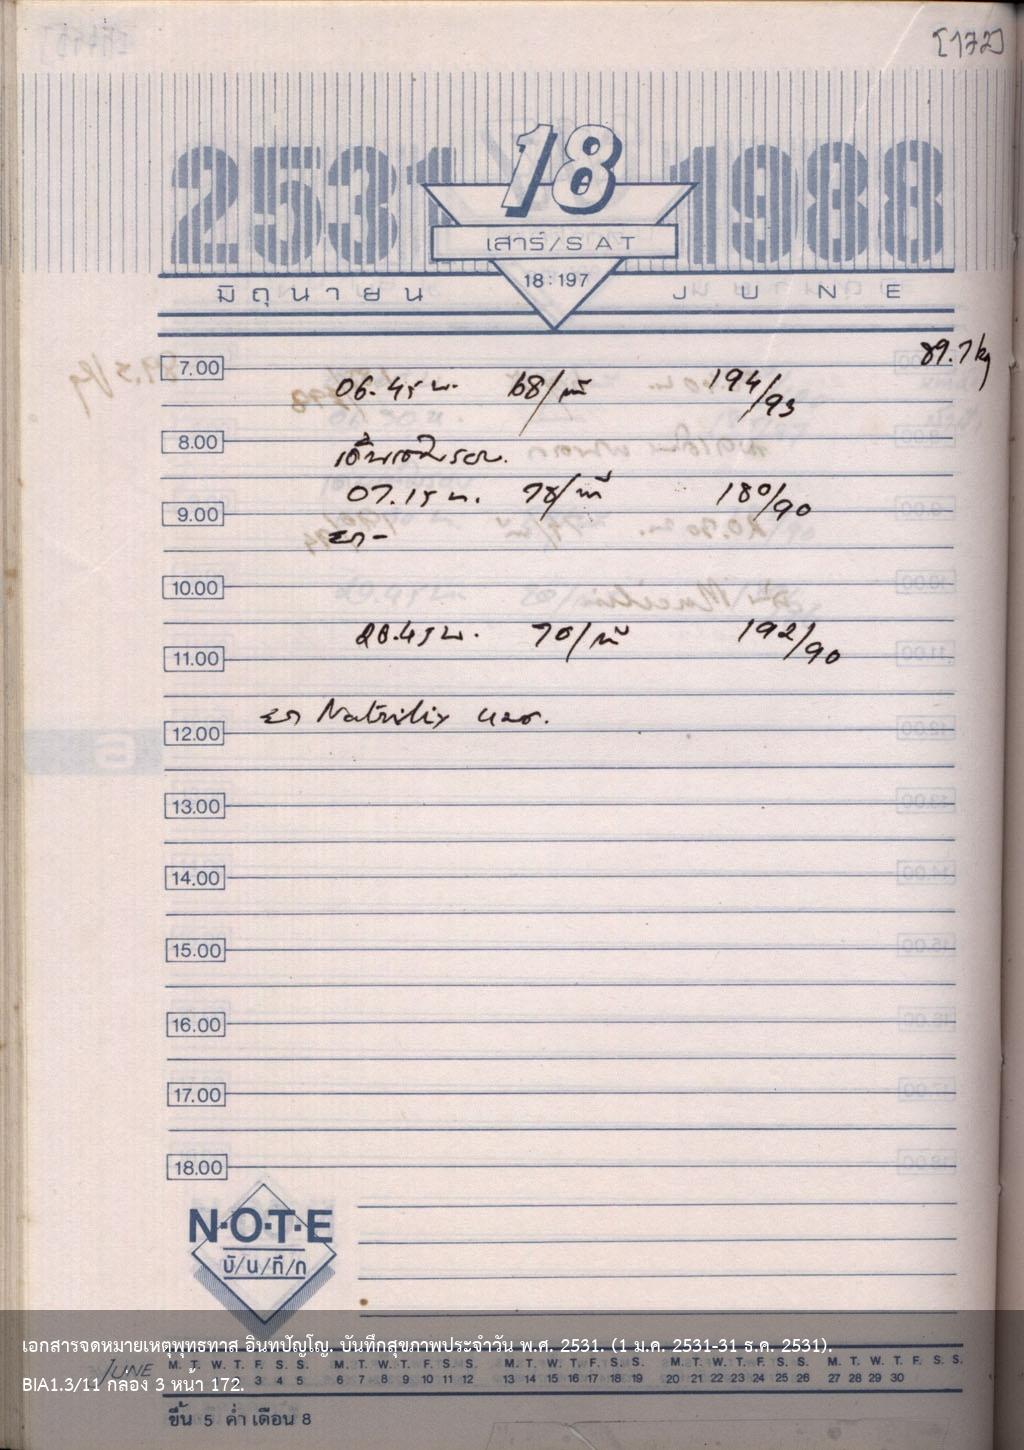 [172]
2531 18 1988
เสาร์/SAT
18:197
มิถุนายน JUNE
89.7 kg
7.00
06.45 น. 68/นที 194/93
8.00
เดินรอบ.
07.15 น. 78/นที 180/90
9.00
ยา -
10.00
20.45 น. 70/นที 192/90
11.00
ยา Natrilix
12.00
13.00
14.00
15.00
16.00
17.00
18.00
N·O·T·E
บั/น/ทึ/ก
เอกสารจดหมายเหตุพุทธทาส อินทปัญโญ. บันทึกสุขภาพประจำวัน พ.ศ. 2531. (1 ม.ค. 2531-31 ธ.ค. 2531).
JUNE M. T. W. T. F. S. S. M. T. W. T. F. S. S. M. T. W. T. F. S. S. M. T. W. T. F. S. S. M. T. W. T. F. S. S.
1 2 3 4 5 6 7 8 9 10 11 12 13 14 15 16 17 18 19 20 21 22 23 24 25 26 27 28 29 30
BIA1.3/11 กล่อง 3 หน้า 172.
ขึ้น 5 ค่ำ เดือน 8